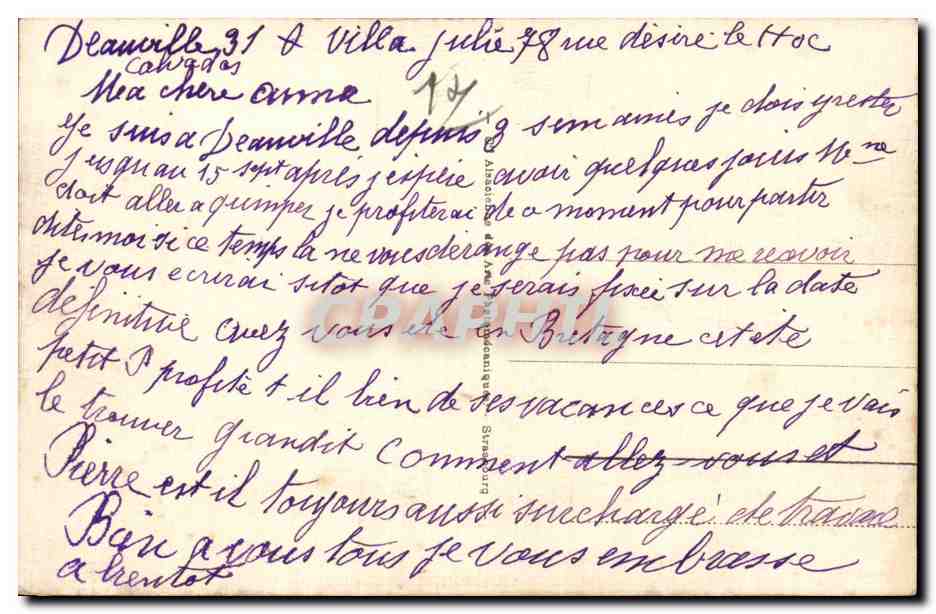 Deauville 31 A Villa Julie 78 rue désiré le Hoc
Calvados
Ma chere amie
17
Je suis a Deauville depuis 3 semaines je dois y rester
jusqu'au 15 sept après j'espère avoir quelques jours Mme
doit aller a quimper je profiterai de ce moment pour partir
dites moi si ce temps la ne vous dérange pas pour me recevoir
je vous ecrirai sitot que je serais fixée sur la date
définitive avez vous été en Bretagne cet été
petit P profite t il bien de ses vacances ce que je vais
le trouver grandit Comment allez-vous et
Pierre est il toujours aussi surchargé de travail
Bien a vous tous je vous embrasse
a bientot
Alsacienne des Arts Photomécaniques Strasbourg
CPARAMA